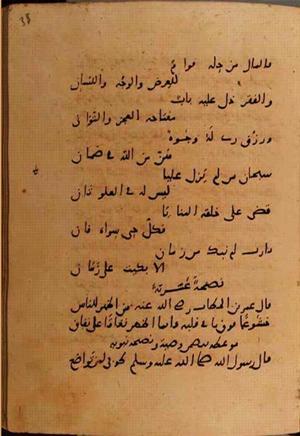 38
والمال من حله قوام
للعرض والوجه واللسان
والفقر ذل عليه باب
مفتاحه العجز والتواني
ورزق ربي له وجوه
هن من الله في ضمان
سبحان من لم يزل عليا
ليس له في العلو ثان
قضى على خلقه المنايا
فكل حي سواه فان
يارب لم نبك من زمان
الا بكيت على زمان
نصيحة عمرية
قال عمر بن الخطاب رضى الله عنه من اظهر للناس
خشوعًا فوق ما في قلبه فانما اظهر نفاقا على نفاق
موعظه ونصيحه نبويه
قال رسول الله صلى الله عليه وسلم طوبى لمن تواضع